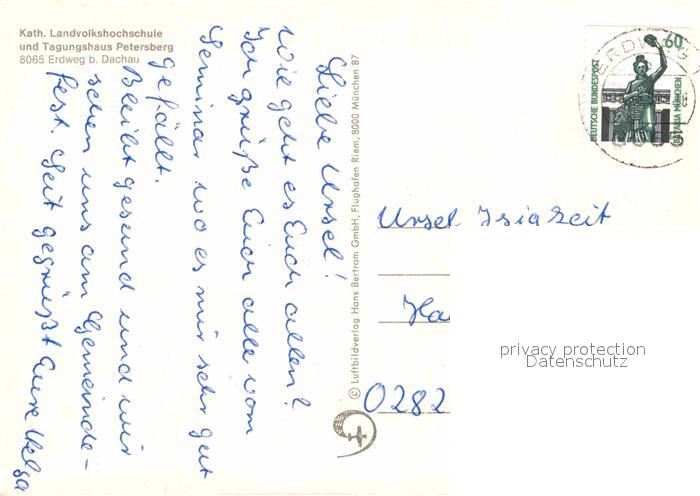 Kath. Landvolkshochschule
und Tagungshaus Petersberg
8065 Erdweg b. Dachau
Liebe Ursel!
Wie geht es Euch allen?
Ich grüße Euch alle vom
Seminar wo es mir sehr gut
gefällt.
Bleibt gesund und wir
sehen uns am Gemeinde-
fest. Seit gegrüßt Eure Helga
© Luftbildverlag Hans Bertram GmbH, Flughafen Riem, 8000 München 87
ERDWEG 1
60
DEUTSCHE BUNDESPOST
BAVARIA MÜNCHEN
Ursel
Ha
0282
privacy protection
Datenschutz